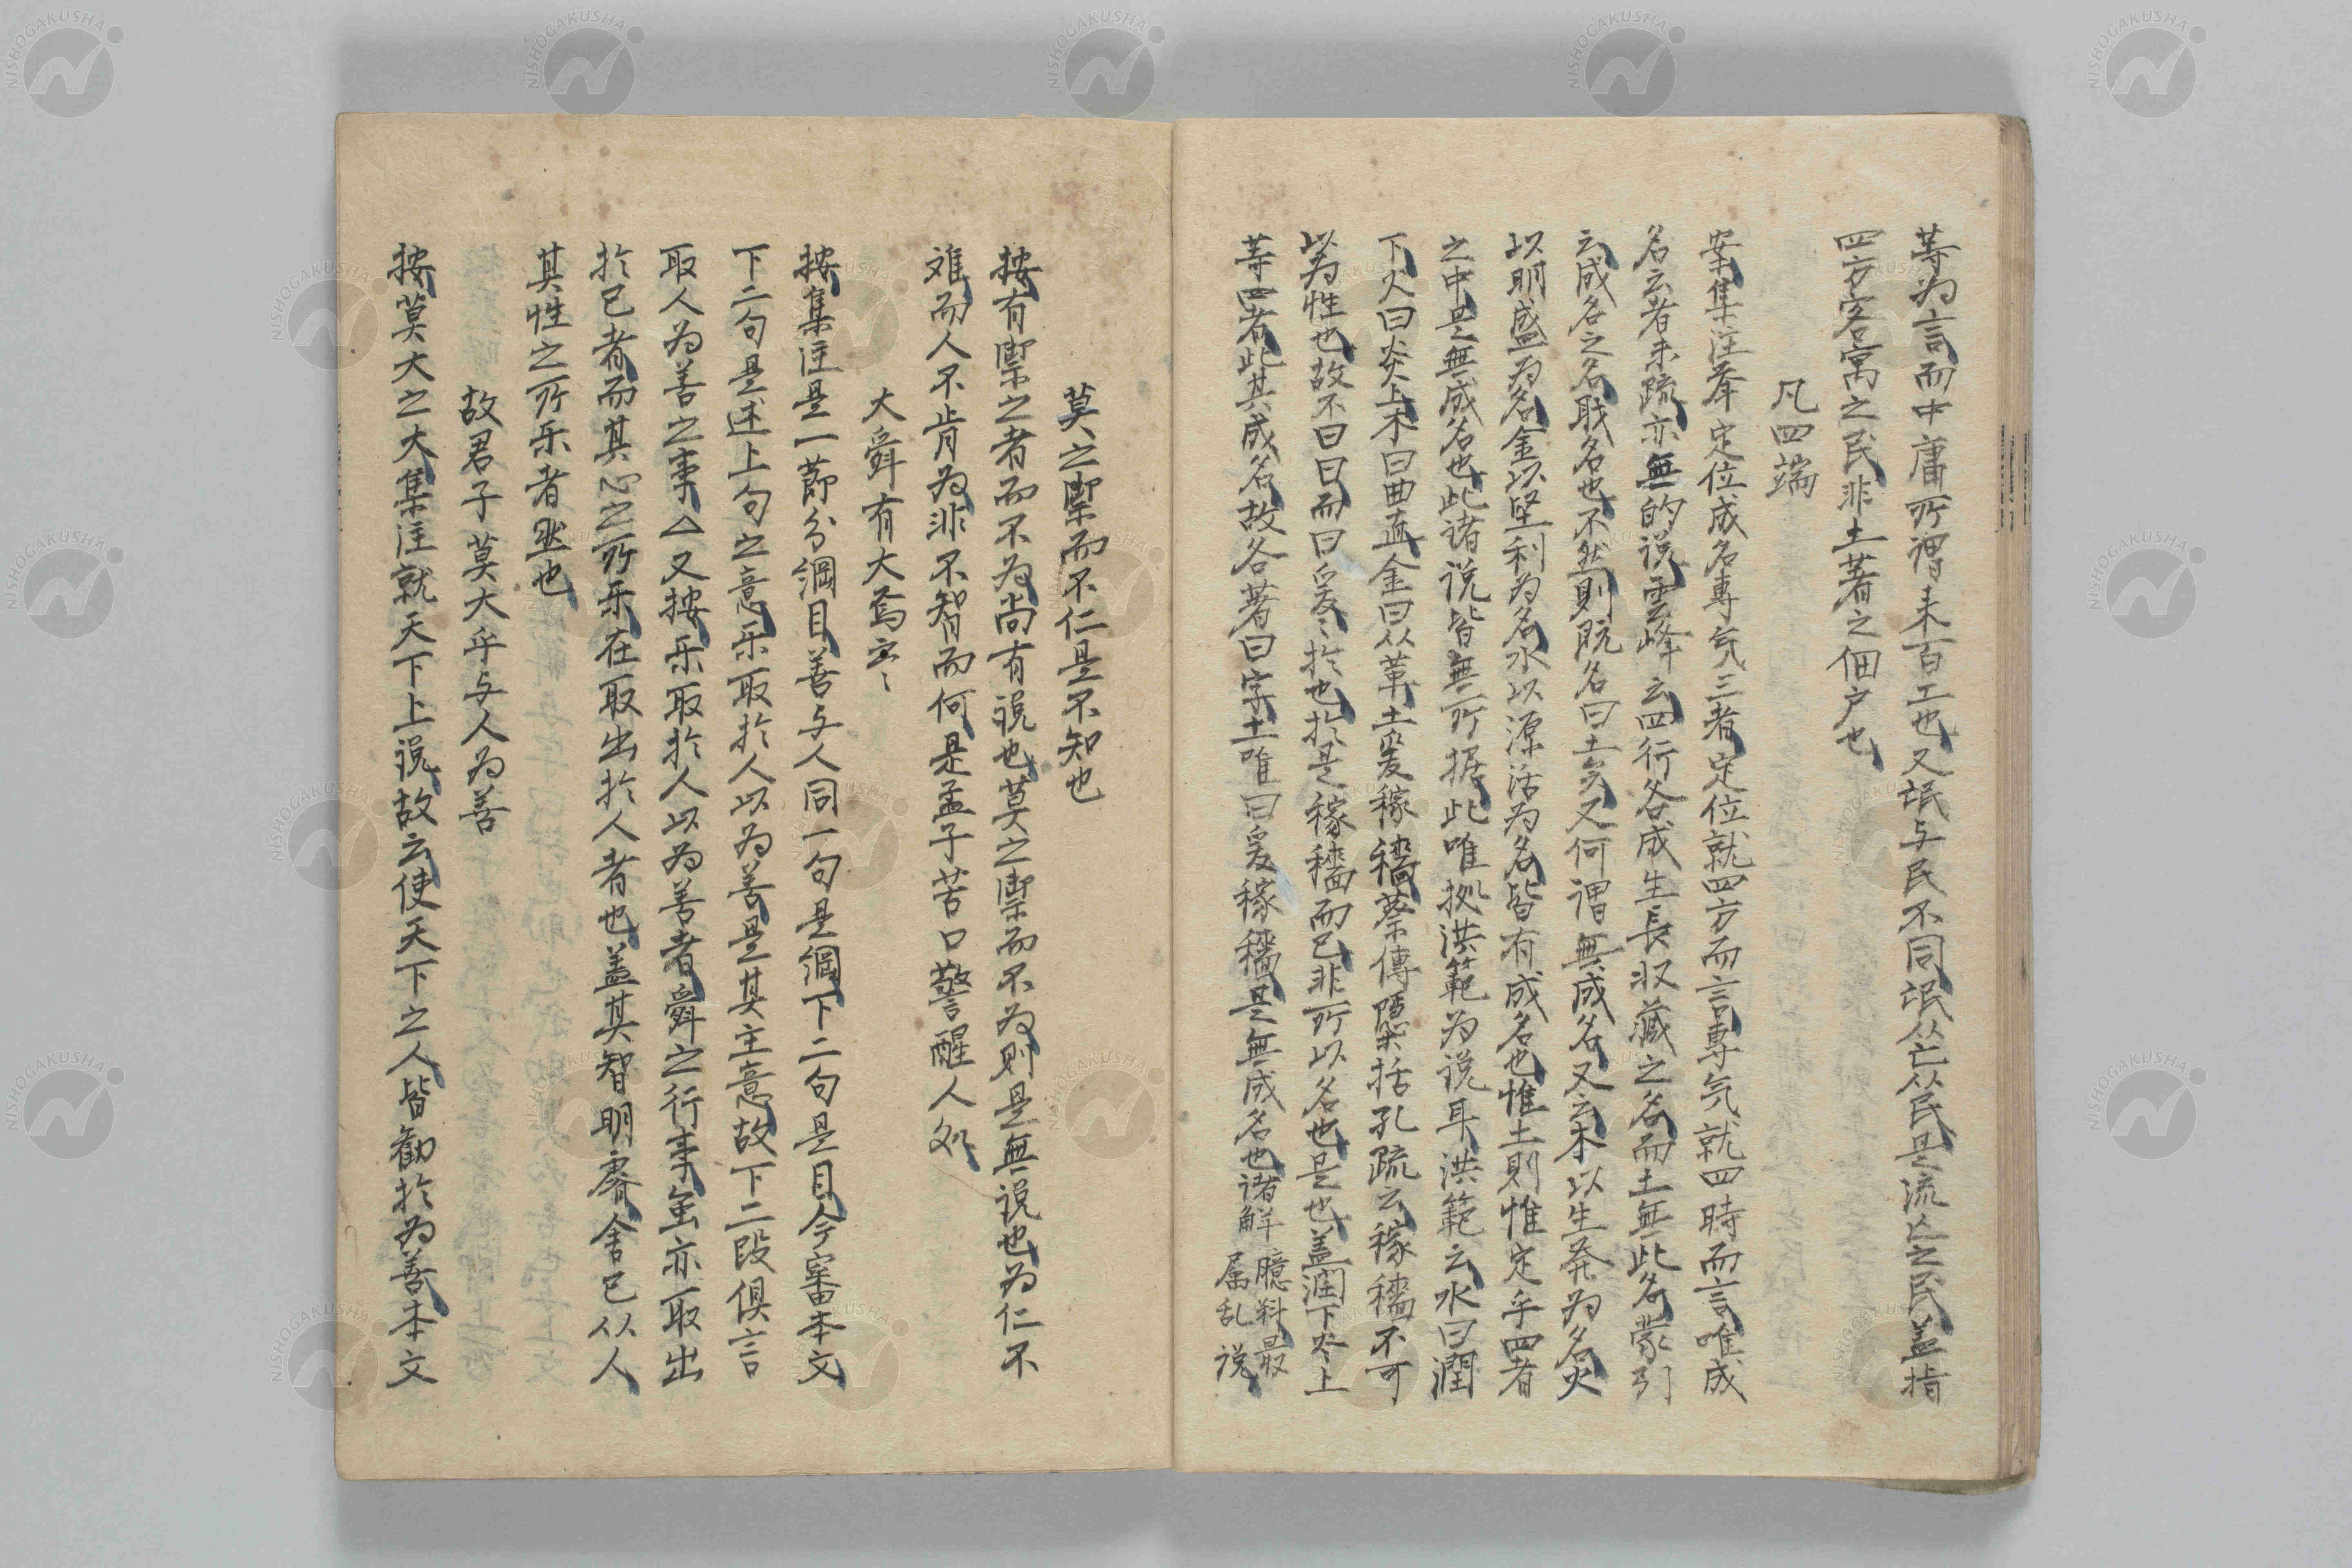 等为言而中庸所谓来百工也又氓与民不同氓从亡从民是流亡之民盖指
四方客寓之民非土著之佃户也
凡四端
案集注牵定位成名專气三者定位就四方而言專气就四時而言唯成
名云者未疏亦無的说雲峰云四行各成生長収藏之名而土無此名蒙引
云成名之名联名也不然則既名曰土矣又何謂無成名又云木以生発为名火
以明盛为名金以坚利为名水以源活为名皆有成名也惟土則惟定乎四者
之中是無成名也此诸说皆無所据此唯拠洪範为说耳洪範云水曰潤
下火曰炎上木曰曲直金曰从革土爰稼穡蔡傳隱括孔疏云稼穡不可
以为性也故不曰曰而曰爰〻於也於是稼穡而已非所以名也是也盖潤下炎上
等四者此其成名故各著曰字土唯曰爰稼穡是無成名也诸解臆料最
属乱说
莫之禦而不仁是不知也
按有禦之者而不为尚有说也莫之禦而不为則是無说也为仁不
难而人不肯为非不智而何是孟子苦口警醒人処
大舜有大焉云〻
按集注是一節分綱目善与人同一句是綱下二句是目今審本文
下二句是述上句之意乐取於人以为善是其主意故下二段俱言
取人为善之事△又按乐取於人以为善者舜之行事虽亦取出
於已者而其心之所乐在取出於人者也盖其智明睿舍已从人
其性之所乐者然也
故君子莫大乎与人为善
按莫大之大集注就天下上说故云使天下之人皆勸於为善本文